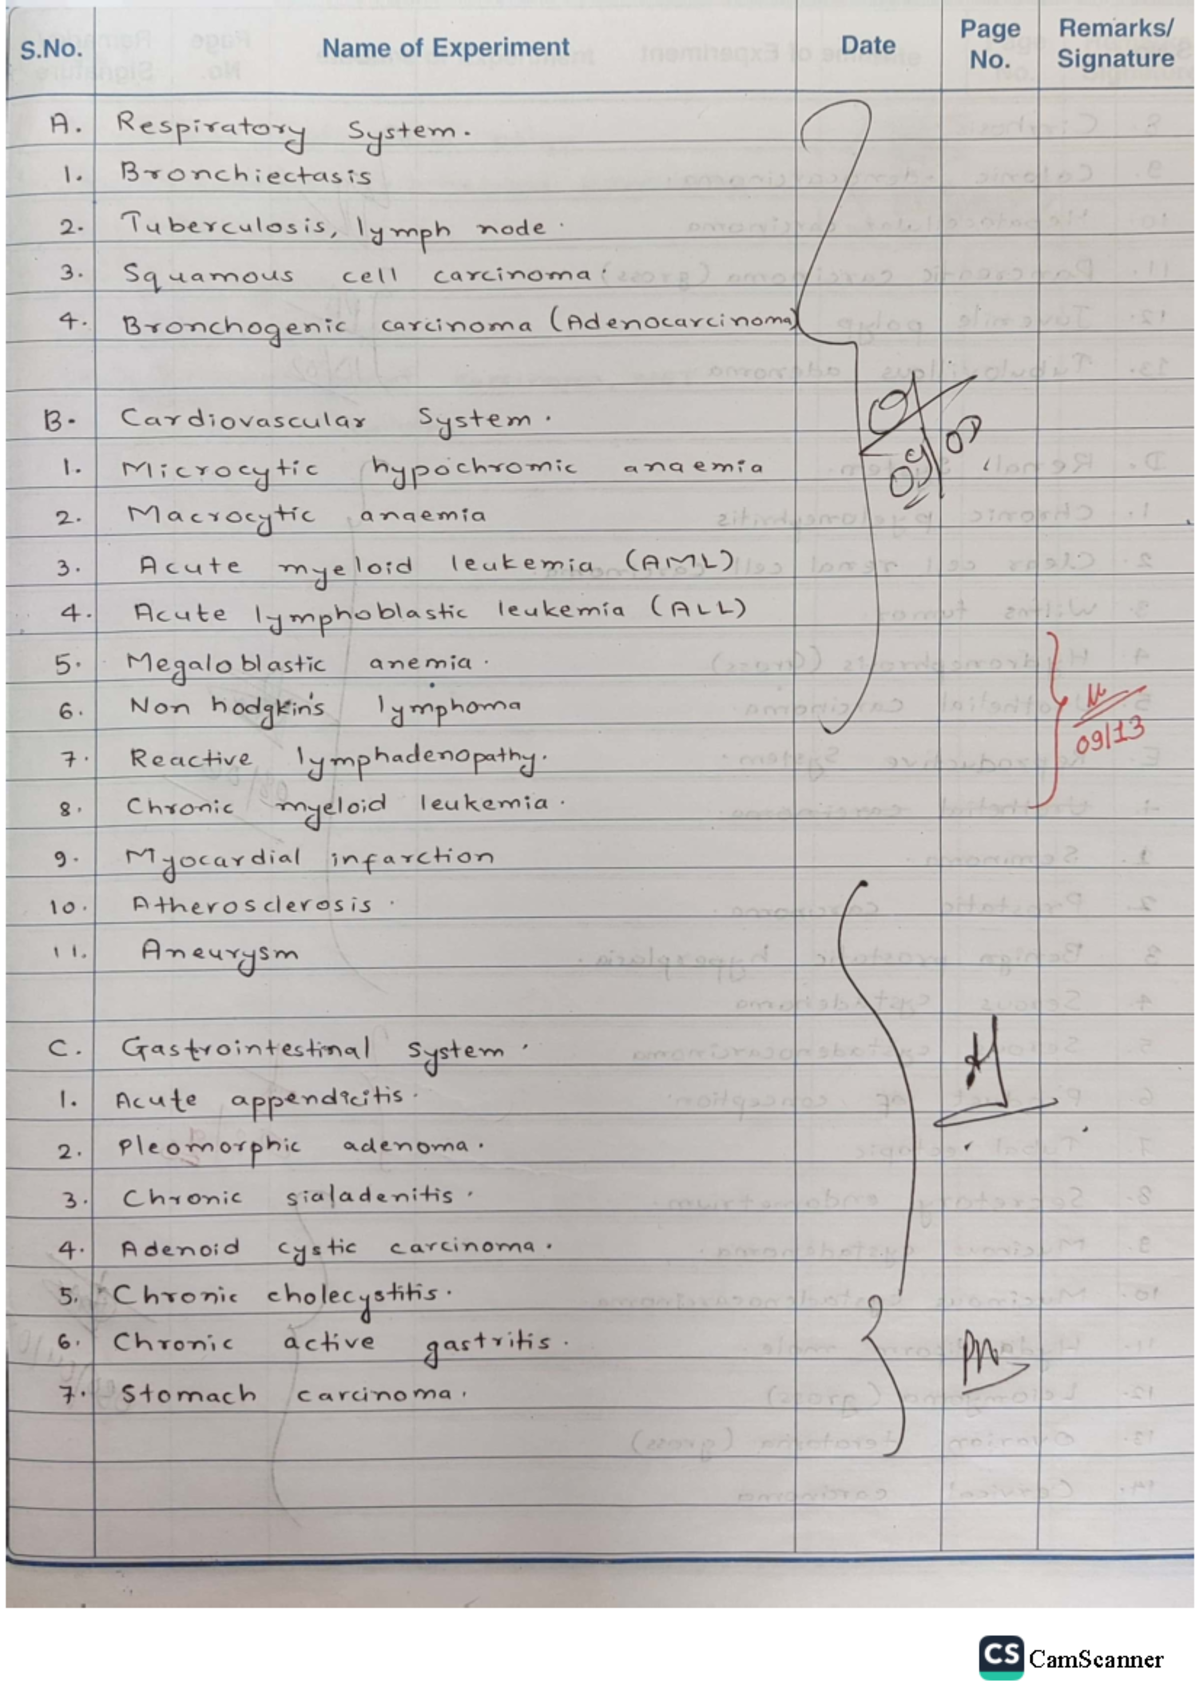 S.No. Name of Experiment Date Page No. Remarks/ Signature
A. Respiratory System.
1. Bronchiectasis
2. Tuberculosis, lymph node.
3. Squamous cell carcinoma.
4. Bronchogenic carcinoma (Adenocarcinoma)
B. Cardiovascular System.
1. Microcytic hypochromic anaemia
2. Macrocytic anaemia
3. Acute myeloid leukemia (AML)
4. Acute lymphoblastic leukemia (ALL)
5. Megaloblastic anemia.
6. Non hodgkin's lymphoma
7. Reactive lymphadenopathy.
09/13
8. Chronic myeloid leukemia.
9. Myocardial infarction
10. Atherosclerosis.
11. Aneurysm
C. Gastrointestinal System.
1. Acute appendicitis.
2. Pleomorphic adenoma.
3. Chronic sialadenitis.
4. Adenoid cystic carcinoma.
5. Chronic cholecystitis.
6. Chronic active gastritis.
7. Stomach carcinoma.
CS CamScanner